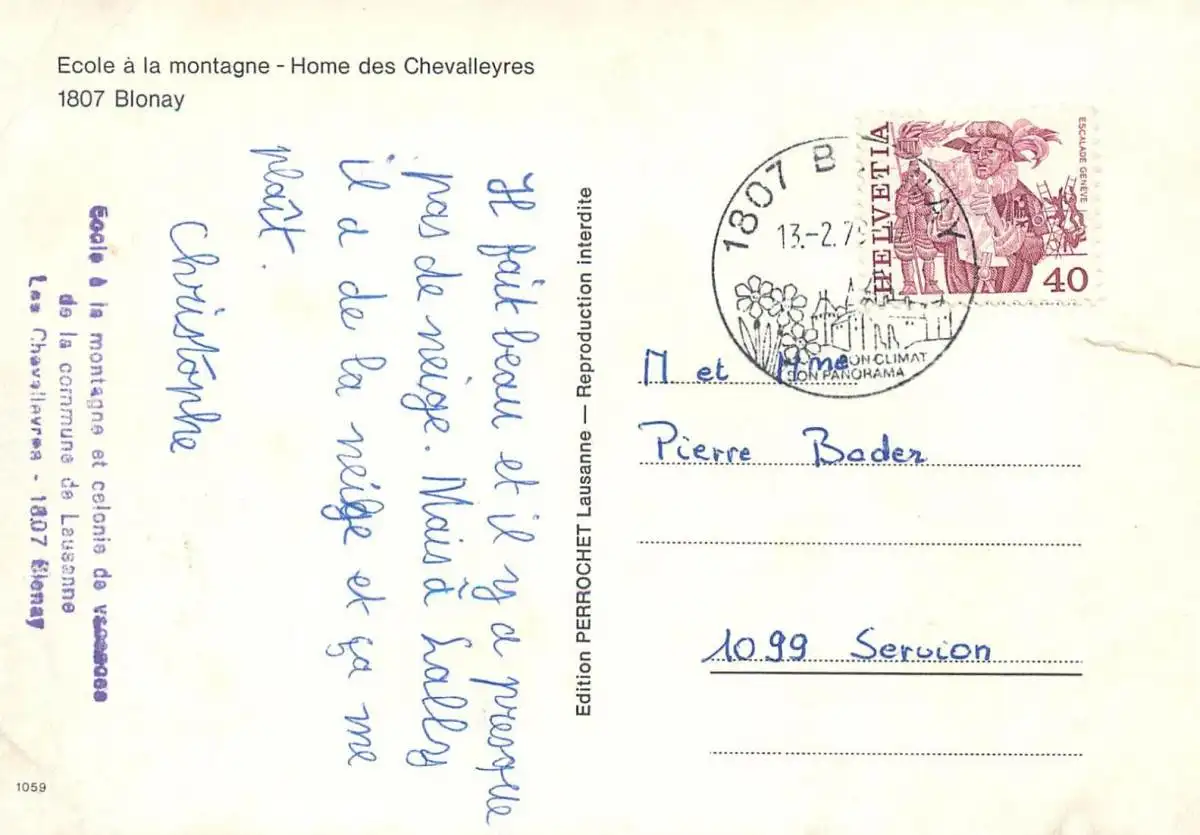 Ecole à la montagne - Home des Chevalleyres
1807 Blonay
Il fait beau et il y a presque
pas de neige. Mais à Lally
il a de la neige et ça me
plaît.
Christophe
Ecole à la montagne et colonie de vacances
de la commune de Lausanne
Les Chevalleyres - 1807 Blonay
1059
Edition PERROCHET Lausanne — Reproduction interdite
1807 B NAY
13.-2.79
BON CLIMAT
BON PANORAMA
HELVETIA
ESCALADE GENÈVE
40
M et Mme
Pierre Bader
1099 Servion